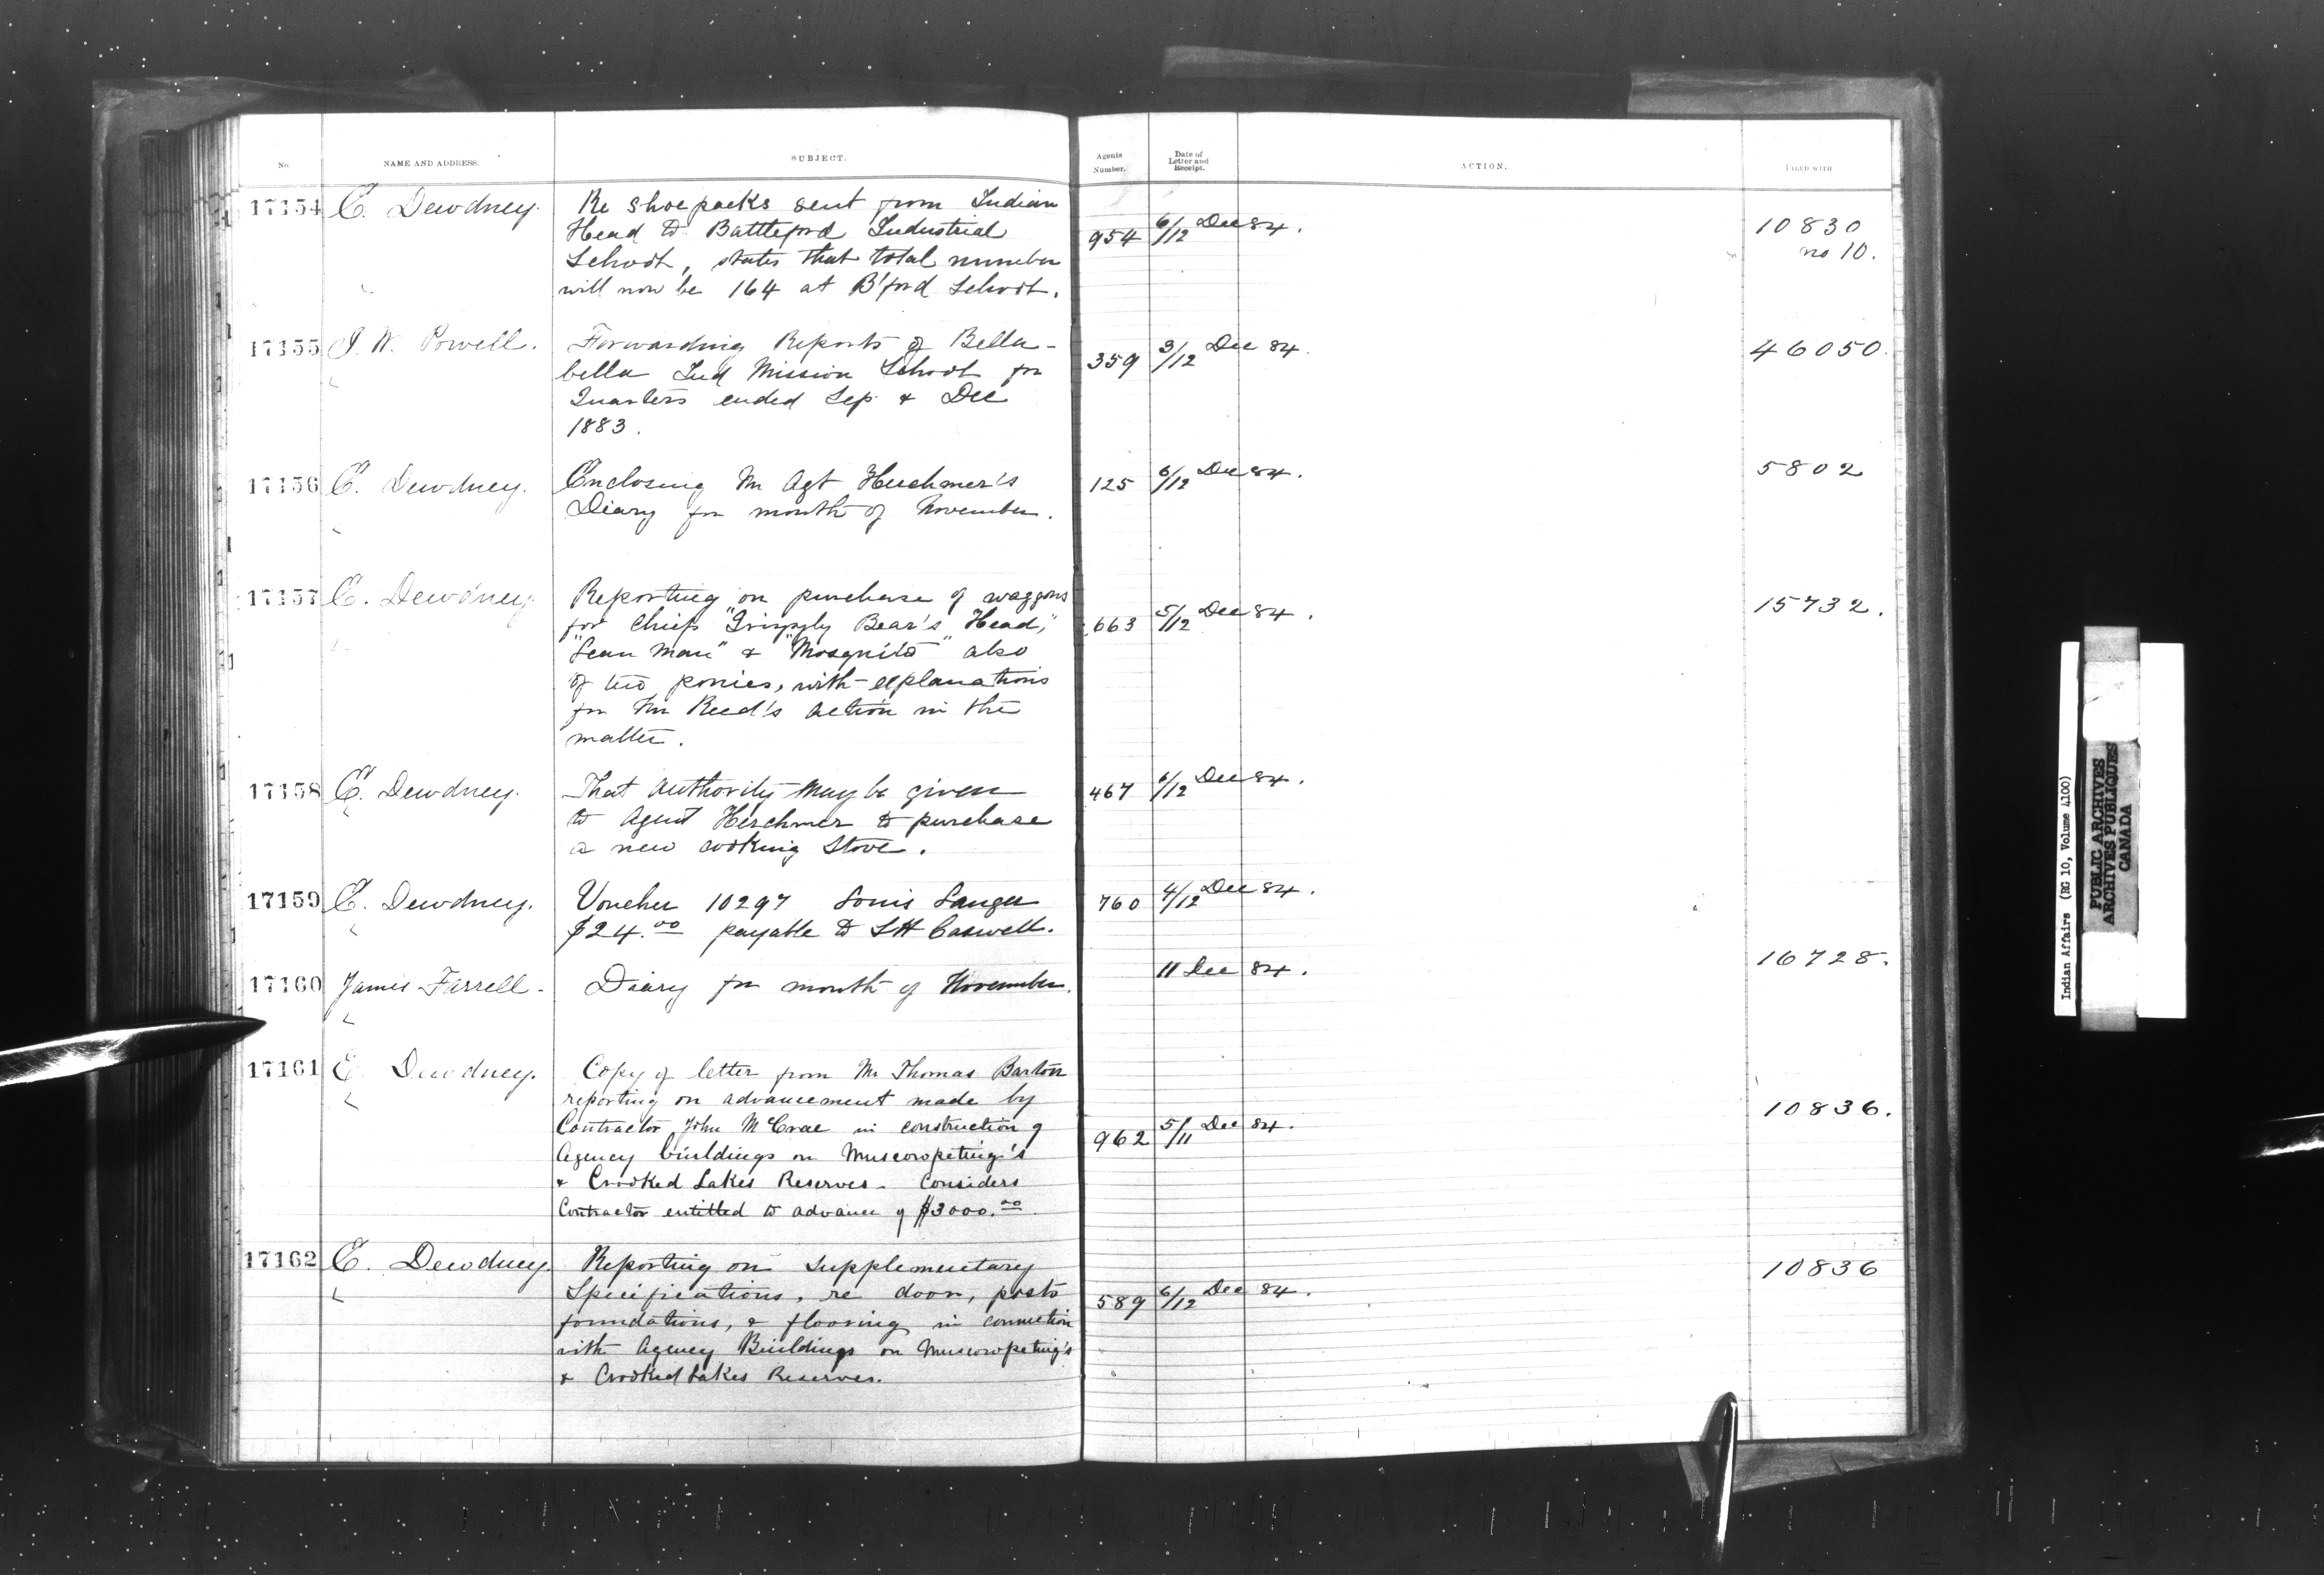 No. NAME AND ADDRESS. SUBJECT. Agents Number. Date of Letter and Receipt. ACTION. FILED WITH
17154 E. Dewdney. Re shoepacks sent from Indian
Head to Battleford Industrial 954 6/12 Dec 84. 10830
School, states that total number no 10.
will now be 164 at B'ford School.
17155 I. W. Powell. Forwarding Reports of Bella- 359 3/12 Dec 84. 46050.
bella Ind Mission School for
Quarters ended Sep. & Dec
1883.
17156 E. Dewdney. Enclosing Mr Agt Herchmer's 125 6/12 Dec 84. 5802
Diary for month of November.
17157 E. Dewdney. Reporting on purchase of waggons 15732.
for Chiefs "Grizzly Bear's Head," 663 5/12 Dec 84.
"Lean Man" & "Mosquito" also
of two ponies, with explanations
for Mr Reed's action in the
matter.
17158 E. Dewdney. That authority may be given 467 6/12 Dec 84.
to Agent Herchmer to purchase
a new cooking stove.
17159 E. Dewdney. Voucher 10297 Louis Langer 760 4/12 Dec 84.
$24.00 payable to LH Caswell.
17160 James Farrell. Diary for month of November. 11 Dec 84. 16728.
17161 E. Dewdney. Copy of letter from Mr Thomas Barton
reporting on advancement made by 10836.
Contractor John McCrae in construction of 962 5/11 Dec 84.
Agency buildings on Muscowpeting's
& Crooked Lakes Reserves. Considers
Contractor entitled to advance of $3000.00.
17162 E. Dewdney. Reporting on Supplementary 10836
Specifications, re door, posts 589 6/12 Dec 84.
foundations, & flooring in connection
with Agency Buildings on Muscowpeting's
& Crooked Lakes Reserves.
Indian Affairs (RG 10, Volume 4100)
PUBLIC ARCHIVES
ARCHIVES PUBLIQUES
CANADA